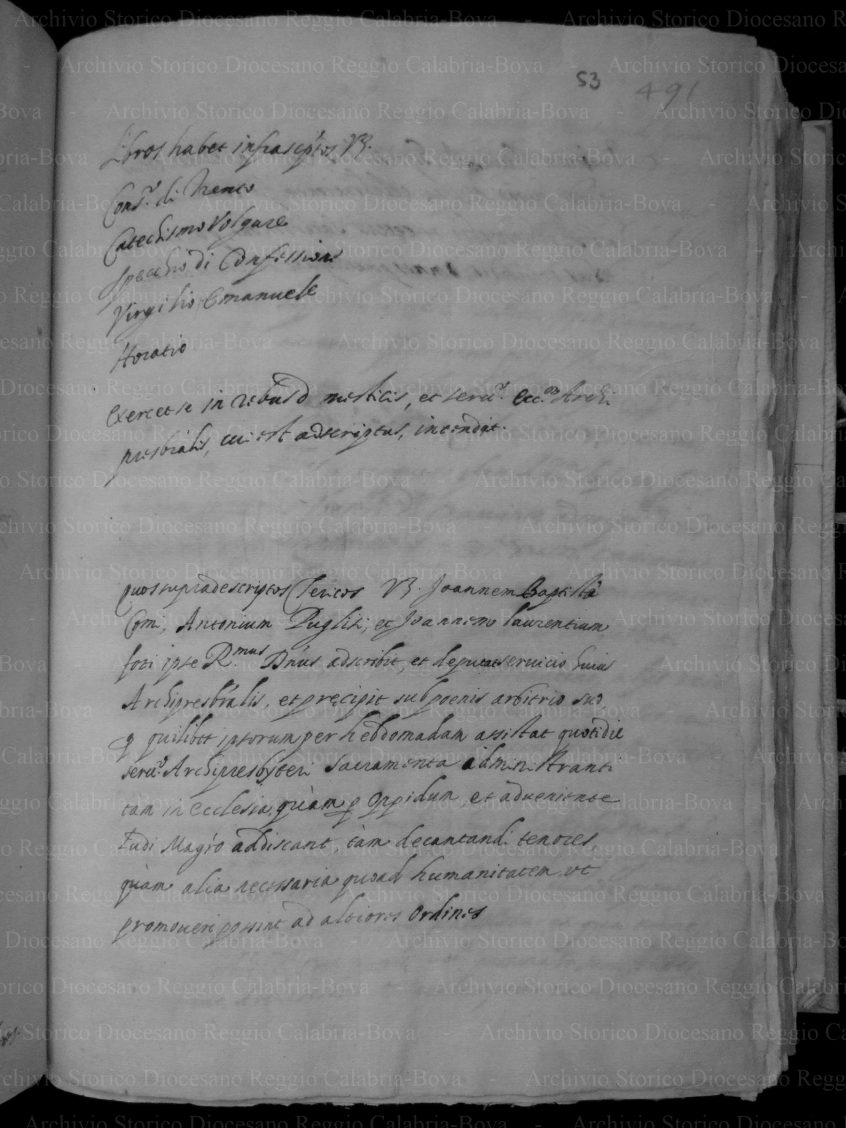 53 491
Libros habet infrascriptos V3.
Conc.o di Trento
Catechismo Volgare
Specchio di Confessione
Virgilio Emanuele
Horatio
exercet se in rebus domesticis, et serv.o Ecc.æ Archi
presbȓalis, cui est adscriptus, intendit.
quos supradescriptos Clericos V3. Joannem Baptistā
Antonium Puglisi, et Joannem laurentium
foti ipse R.mus Dn̄us adscribit, et deputat servicio huius
Archipresbr̄alis, et precipit sub poenis arbitrio suo
q̄ quilibet ipsorum per hebdomadam assistat quotidie
serv.o Archipresbyteri Sacramenta administranti
tam in ecclesia, quàm p̱ Oppidum, et adveniente
ludi Mag̃ro addiscant, tàm decantandi tenores,
quàm alia necessaria quoad humanitatem ut
promoveri possint ad altiores Ordines
Archivio Storico Diocesano Reggio Calabria-Bova